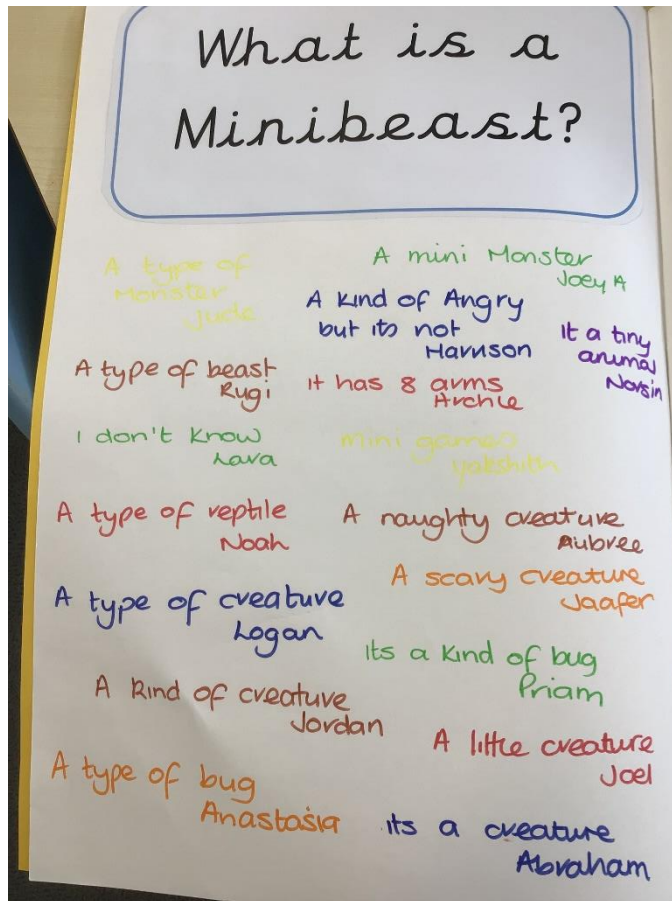 What is a
Minibeast?
A type of
Monster
Jude
A mini Monster
Joey A
A kind of Angry
but its not
Harrison
It a tiny
animal
Norsin
A type of beast
Rugi
it has 8 arms
Archie
I don't know
Lava
mini games
Yakshith
A type of reptile
Noah
A naughty creature
Aubree
A scary creature
Jaafer
A type of creature
Logan
its a kind of bug
Priam
A kind of creature
Jordan
A little creature
Joel
A type of bug
Anastasia
its a creature
Abraham